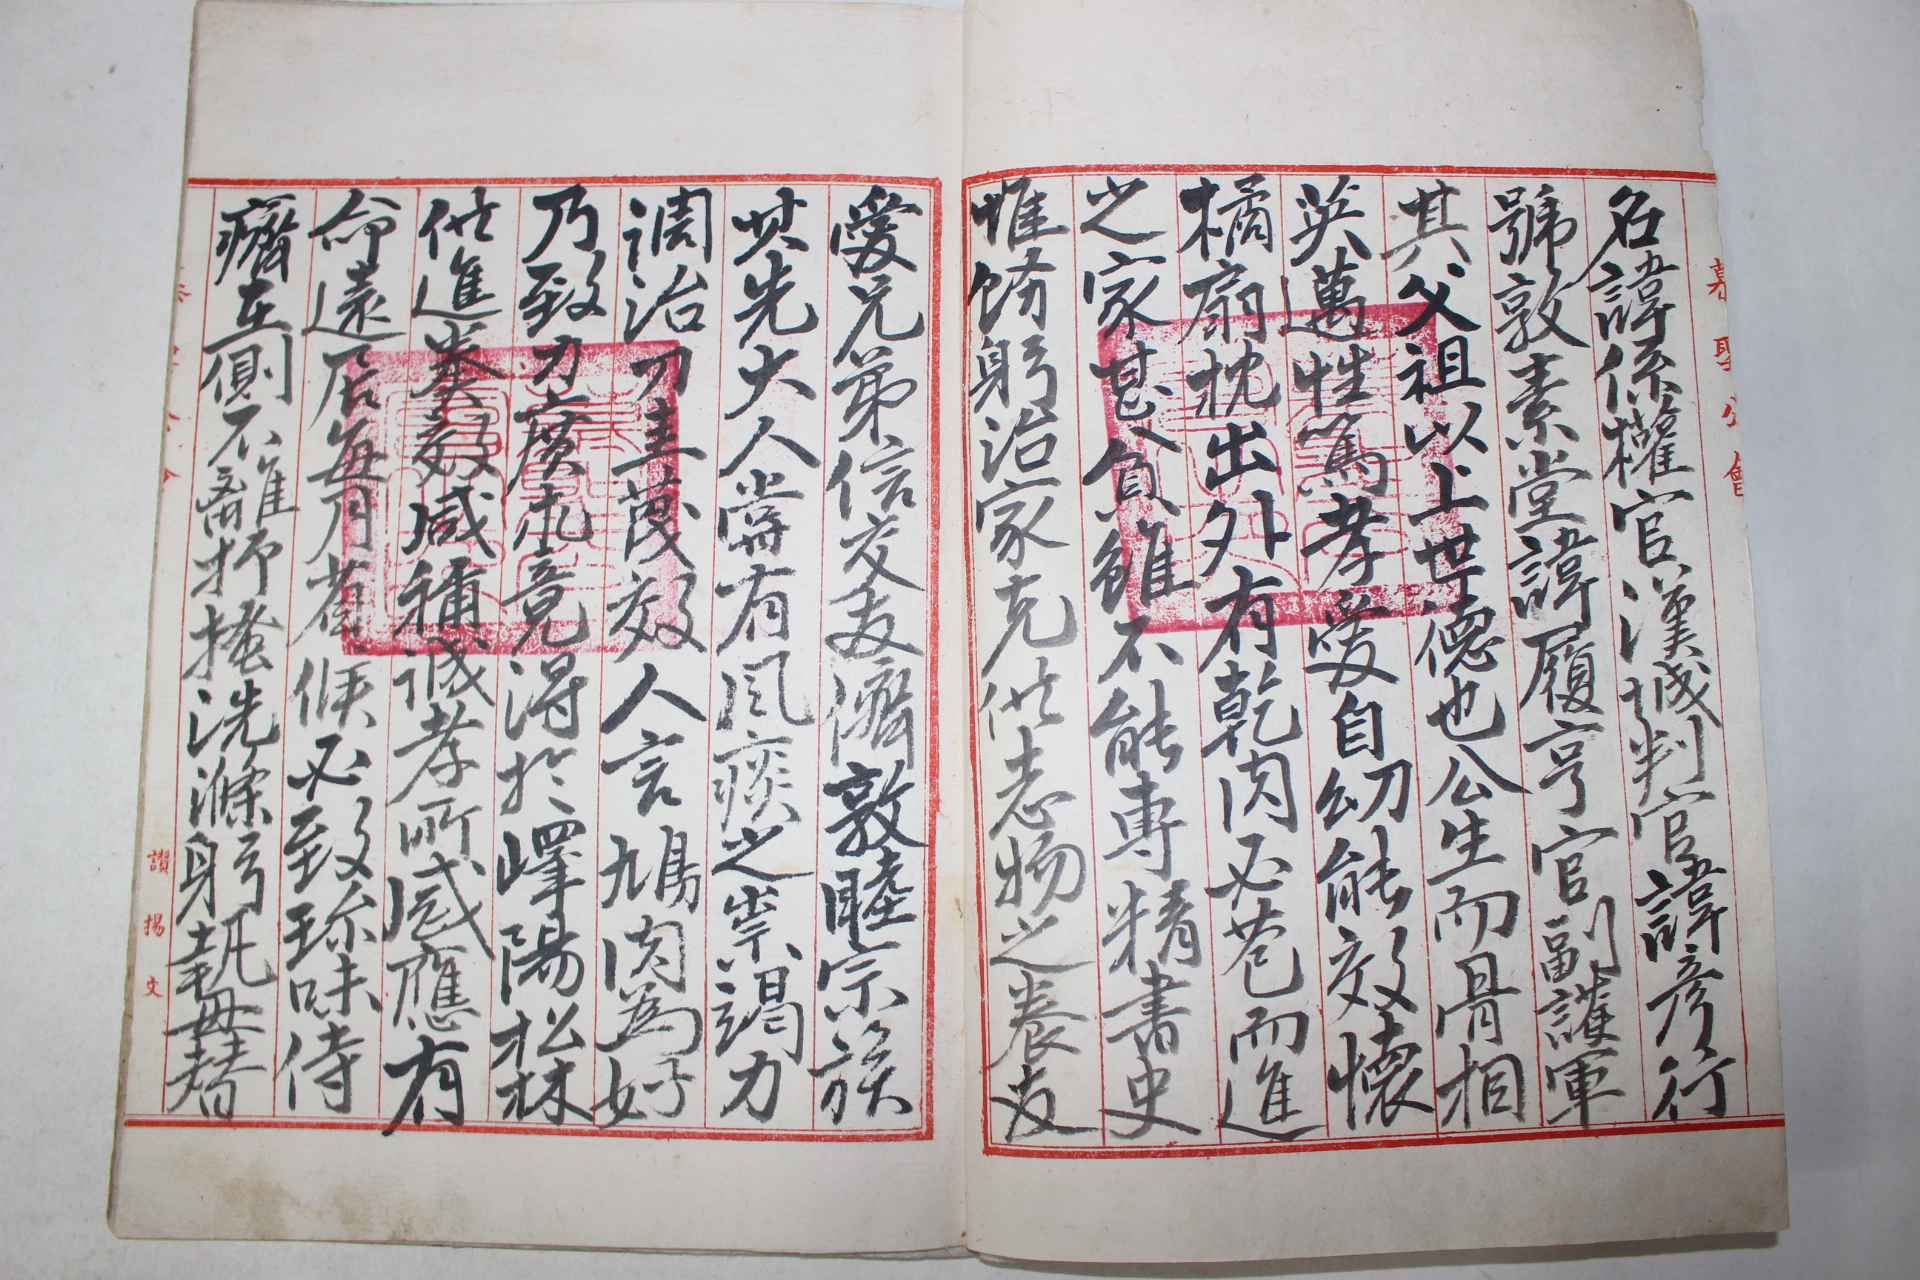 名諱係權官漢城判官諱彦行
號敦素堂諱履亨官副護軍
其父祖以上世德也公生而骨相
英邁性篤孝愛自幼能效懷
橘扇枕出外有乾肉必苞而進
之家甚貧雖不能專精書史
惟飭躬治家克供志物之養友
愛兄弟信交友儕敦睦宗族
其先大人嘗有風痰之祟竭力
調治刀圭蔑效人言鳩肉為好
乃致力廣求竟得於嶧陽松林
供進奏效咸稱誠孝所感應有
命遠居每月省候必致珍味侍
癠在側不離抑搔洗滌躬執
讚揚文
慕聖公會